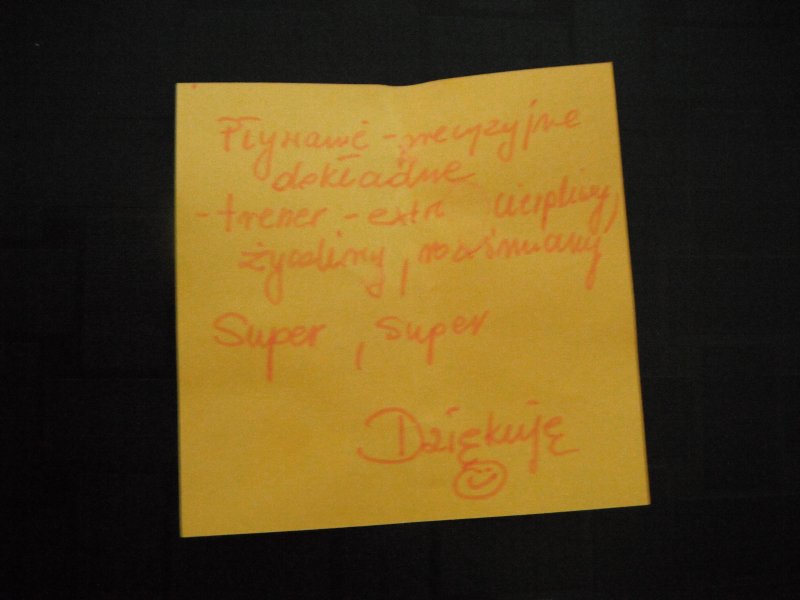 - precyzyjne
dokładne
- trener - extra cierpliwy,
życzliwy, roześmiany
Super, super
Dziękuję